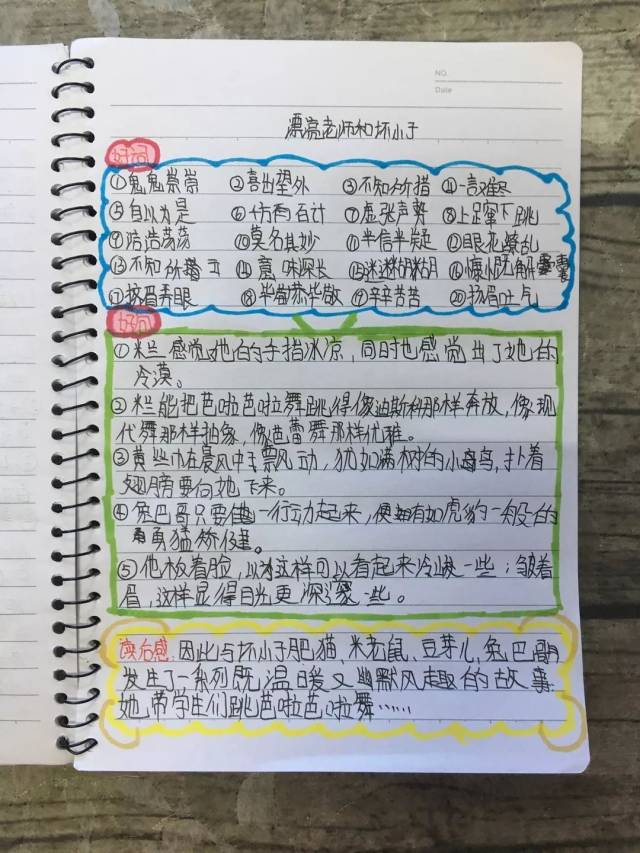 NO.
Date
漂亮老师和坏小子
好词
①鬼鬼祟祟 ②喜出望外 ③不知所措 ④一言难尽
⑤自以为是 ⑥千方百计 ⑦虚张声势 ⑧上蹿下跳
⑨浩浩荡荡 ⑩莫名其妙 ⑪半信半疑 ⑫眼花缭乱
⑬不知所云 ⑭意味深长 ⑮迷迷糊糊 ⑯慷慨解囊
⑰挤眉弄眼 ⑱毕恭毕敬 ⑲辛辛苦苦 ⑳扬眉吐气
好句
①米兰感觉她的手指冰凉,同时也感觉出了她的
冷漠。
②米兰能把芭啦芭啦舞跳得像迪斯科那样奔放,像现
代舞那样抽象,像芭蕾舞那样优雅。
③黄丝巾在晨风中飘动,犹如满树的小鸟,扑着
翅膀要向她飞下来。
④兔巴哥只要他一行动起来,便有如虎豹一般的
勇猛矫健。
⑤他板着脸,以为这样可以看起来冷峻一些;皱着
眉,这样显得目光更深邃一些。
读后感:因此与坏小子肥猫、米老鼠、豆芽儿、兔巴哥
发生了一系列既温暖又幽默风趣的故事
她带学生们跳芭啦芭啦舞……